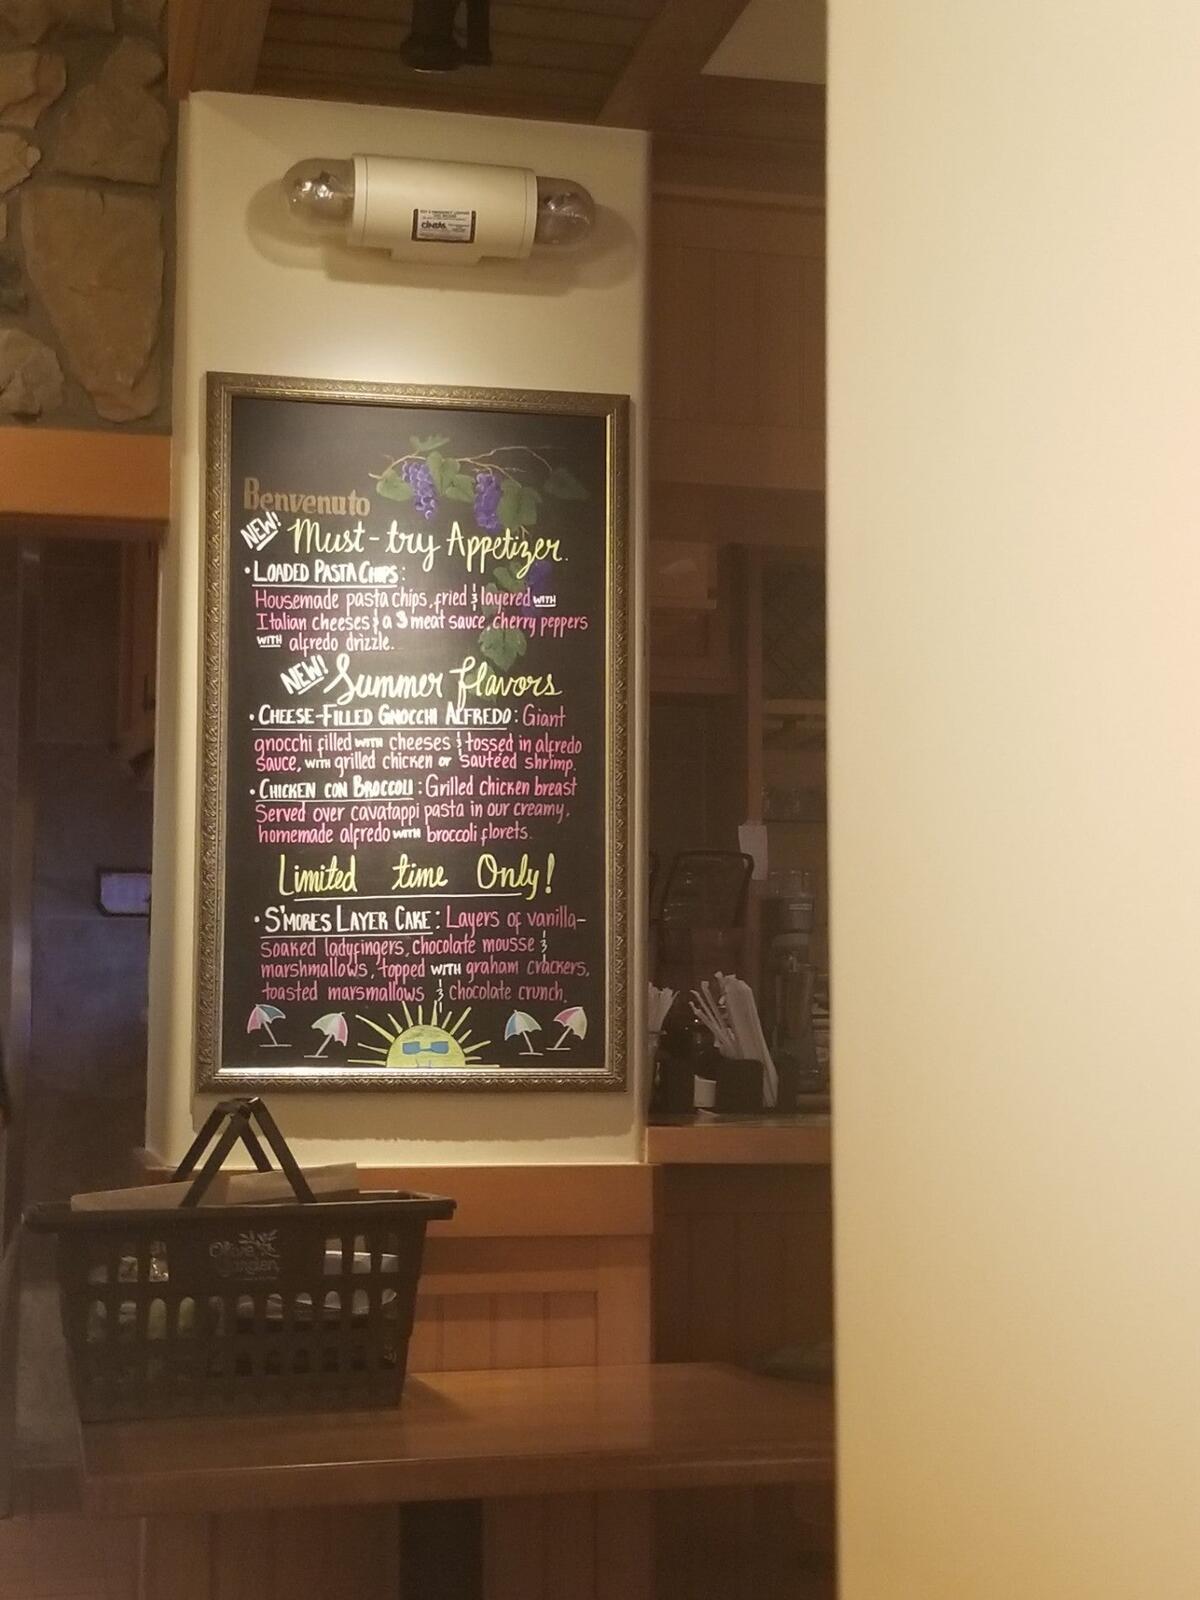 CINTAS
Benvenuto
NEW! Must-try Appetizer.
• LOADED PASTA CHIPS:
Housemade pasta chips, fried & layered WITH
Italian cheeses & a 3 meat sauce, cherry peppers
WITH alfredo drizzle.
NEW! Summer flavors
• CHEESE-FILLED GNOCCHI ALFREDO: Giant
gnocchi filled WITH cheeses & tossed in alfredo
sauce, WITH grilled chicken or sautéed shrimp.
• CHICKEN CON BROCCOLI: Grilled chicken breast
Served over cavatappi pasta in our creamy,
homemade alfredo WITH broccoli florets.
Limited time Only!
• S'MORES LAYER CAKE: Layers of vanilla-
soaked ladyfingers, chocolate mousse &
marshmallows, topped WITH graham crackers,
toasted marsmallows & chocolate crunch.
Olive
Garden